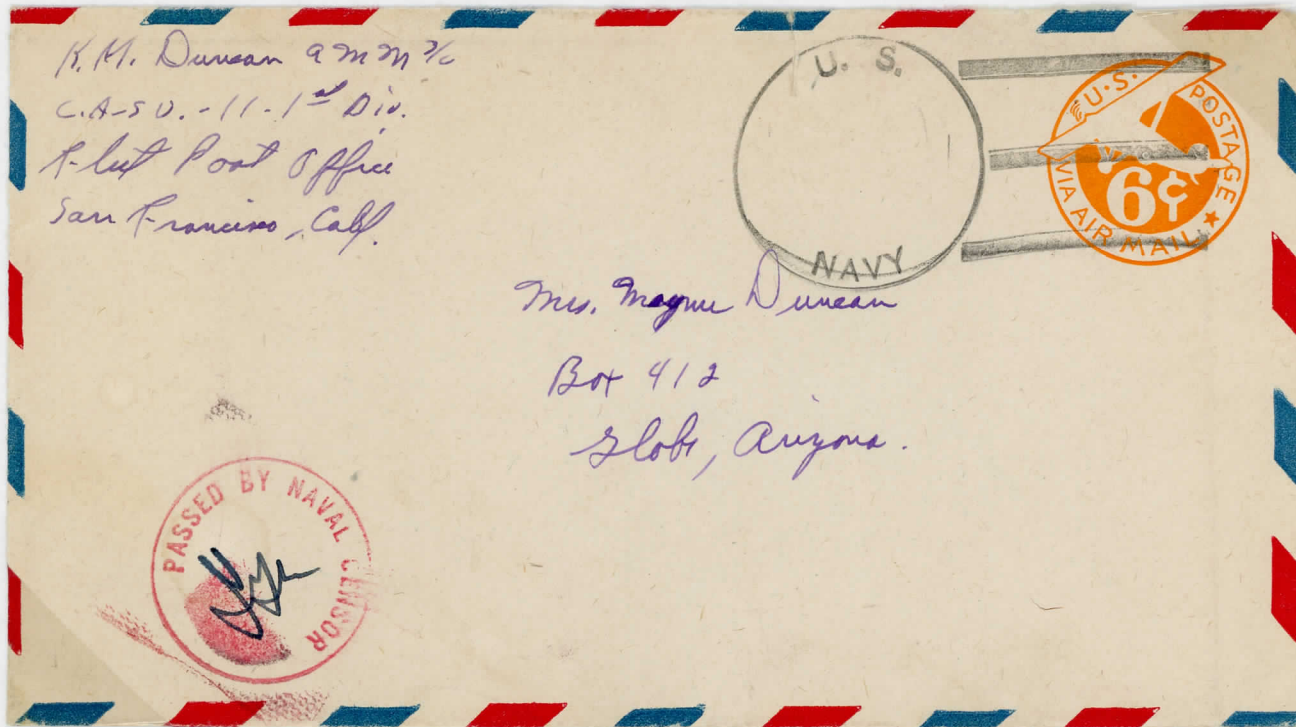 K.M. Duncan AMM 3/c
C.A-SU.-11-1st Div.
Fleet Post Office
San Francisco, Calif.
U. S.
NAVY
U.S. POSTAGE
6¢
VIA AIR MAIL
Mrs. Mayme Duncan
Box 412
Globe, Arizona.
PASSED BY NAVAL CENSOR